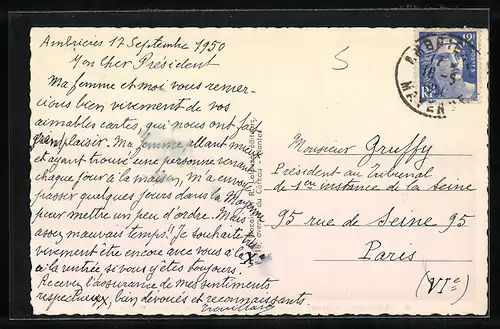 Ambrières 17 Septembre 1950
Mon Cher Président
Ma femme et moi vous remer-
cions bien vivement de vos
aimables cartes, qui nous ont fait
gran plaisir. Ma femme allant mieux
et ayant trouvé une personne venant
chaque jour à la maison, m'a envoyé
passer quelques jours dans la Mayenne
pour mettre un peu d'ordre. Mais
assez mauvais temps! Je souhaite très
vivement être encore avec vous à la
à la rentrée si vous y êtes toujours.
Recevez l'assurance de mes sentiments
respectueux, bien dévoués et reconnaissants.
5
12F
MAYENNE
Monsieur Gruffy
Président au Tribunal
de 1ere instance de la Seine
95 rue de Seine 95
Paris
(VIe)